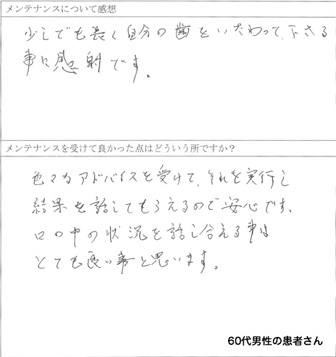 メンテナンスについて感想
少しでも長く自分の歯をいたわって下さる
事に感謝です。
メンテナンスを受けて良かった点はどういう所ですか？
色々なアドバイスを受けて、それを実行し
結果を話してもらえるので安心です。
口の中の状況を話し合える事は
とても良い事と思います。
60代男性の患者さん